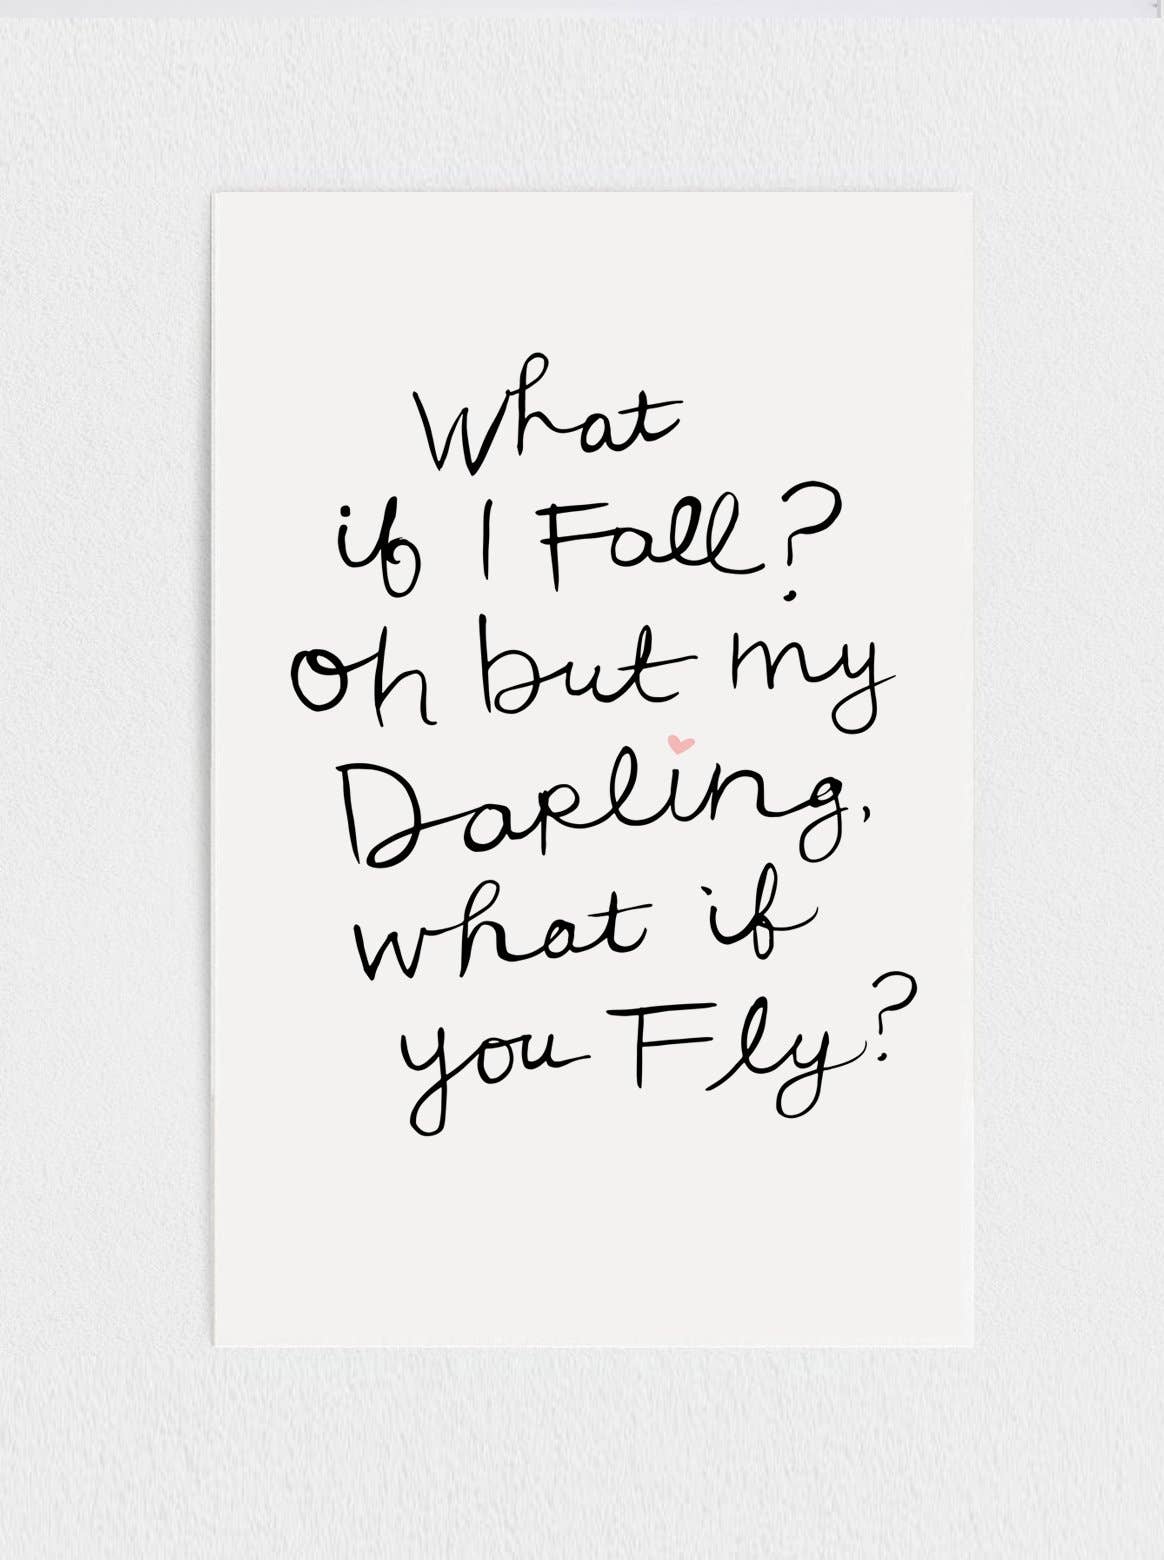 What
if I Fall?
Oh but my
Darling,
what if
you Fly?